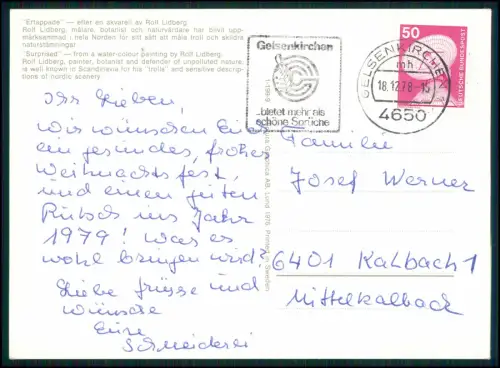 "Ertappade" – efter en akvarell av Rolf Lidberg.
Rolf Lidberg, målare, botanist och naturvårdare har blivit upp-
märksammad i hela Norden för sitt sätt att måla troll och skildra
naturstämningar.
"Surprised" – from a water-colour painting by Rolf Lidberg.
Rolf Lidberg, painter, botanist and defender of unpolluted nature,
is well known in Scandinavia for his "trolls" and sensitive descrip-
tions of nordic scenery
Ihr Lieben,
wir wünschen Euch
ein gesundes, frohes
Weihnachtsfest,
und einen guten
Rutsch ins Jahr
1979! Was es
wohl bringen wird?
Liebe Grüsse und
Wünsche
Eure
Schneiderei
Gelsenkirchen
bietet mehr als
schöne Sprüche
GELSENKIRCHEN
mh
18.12.78
4650
50
DEUTSCHE BUNDESPOST
AB, Lund 1976 Printed in Sweden
Familie
Josef Werner
6401 Kalbach 1
Mittelkalbach